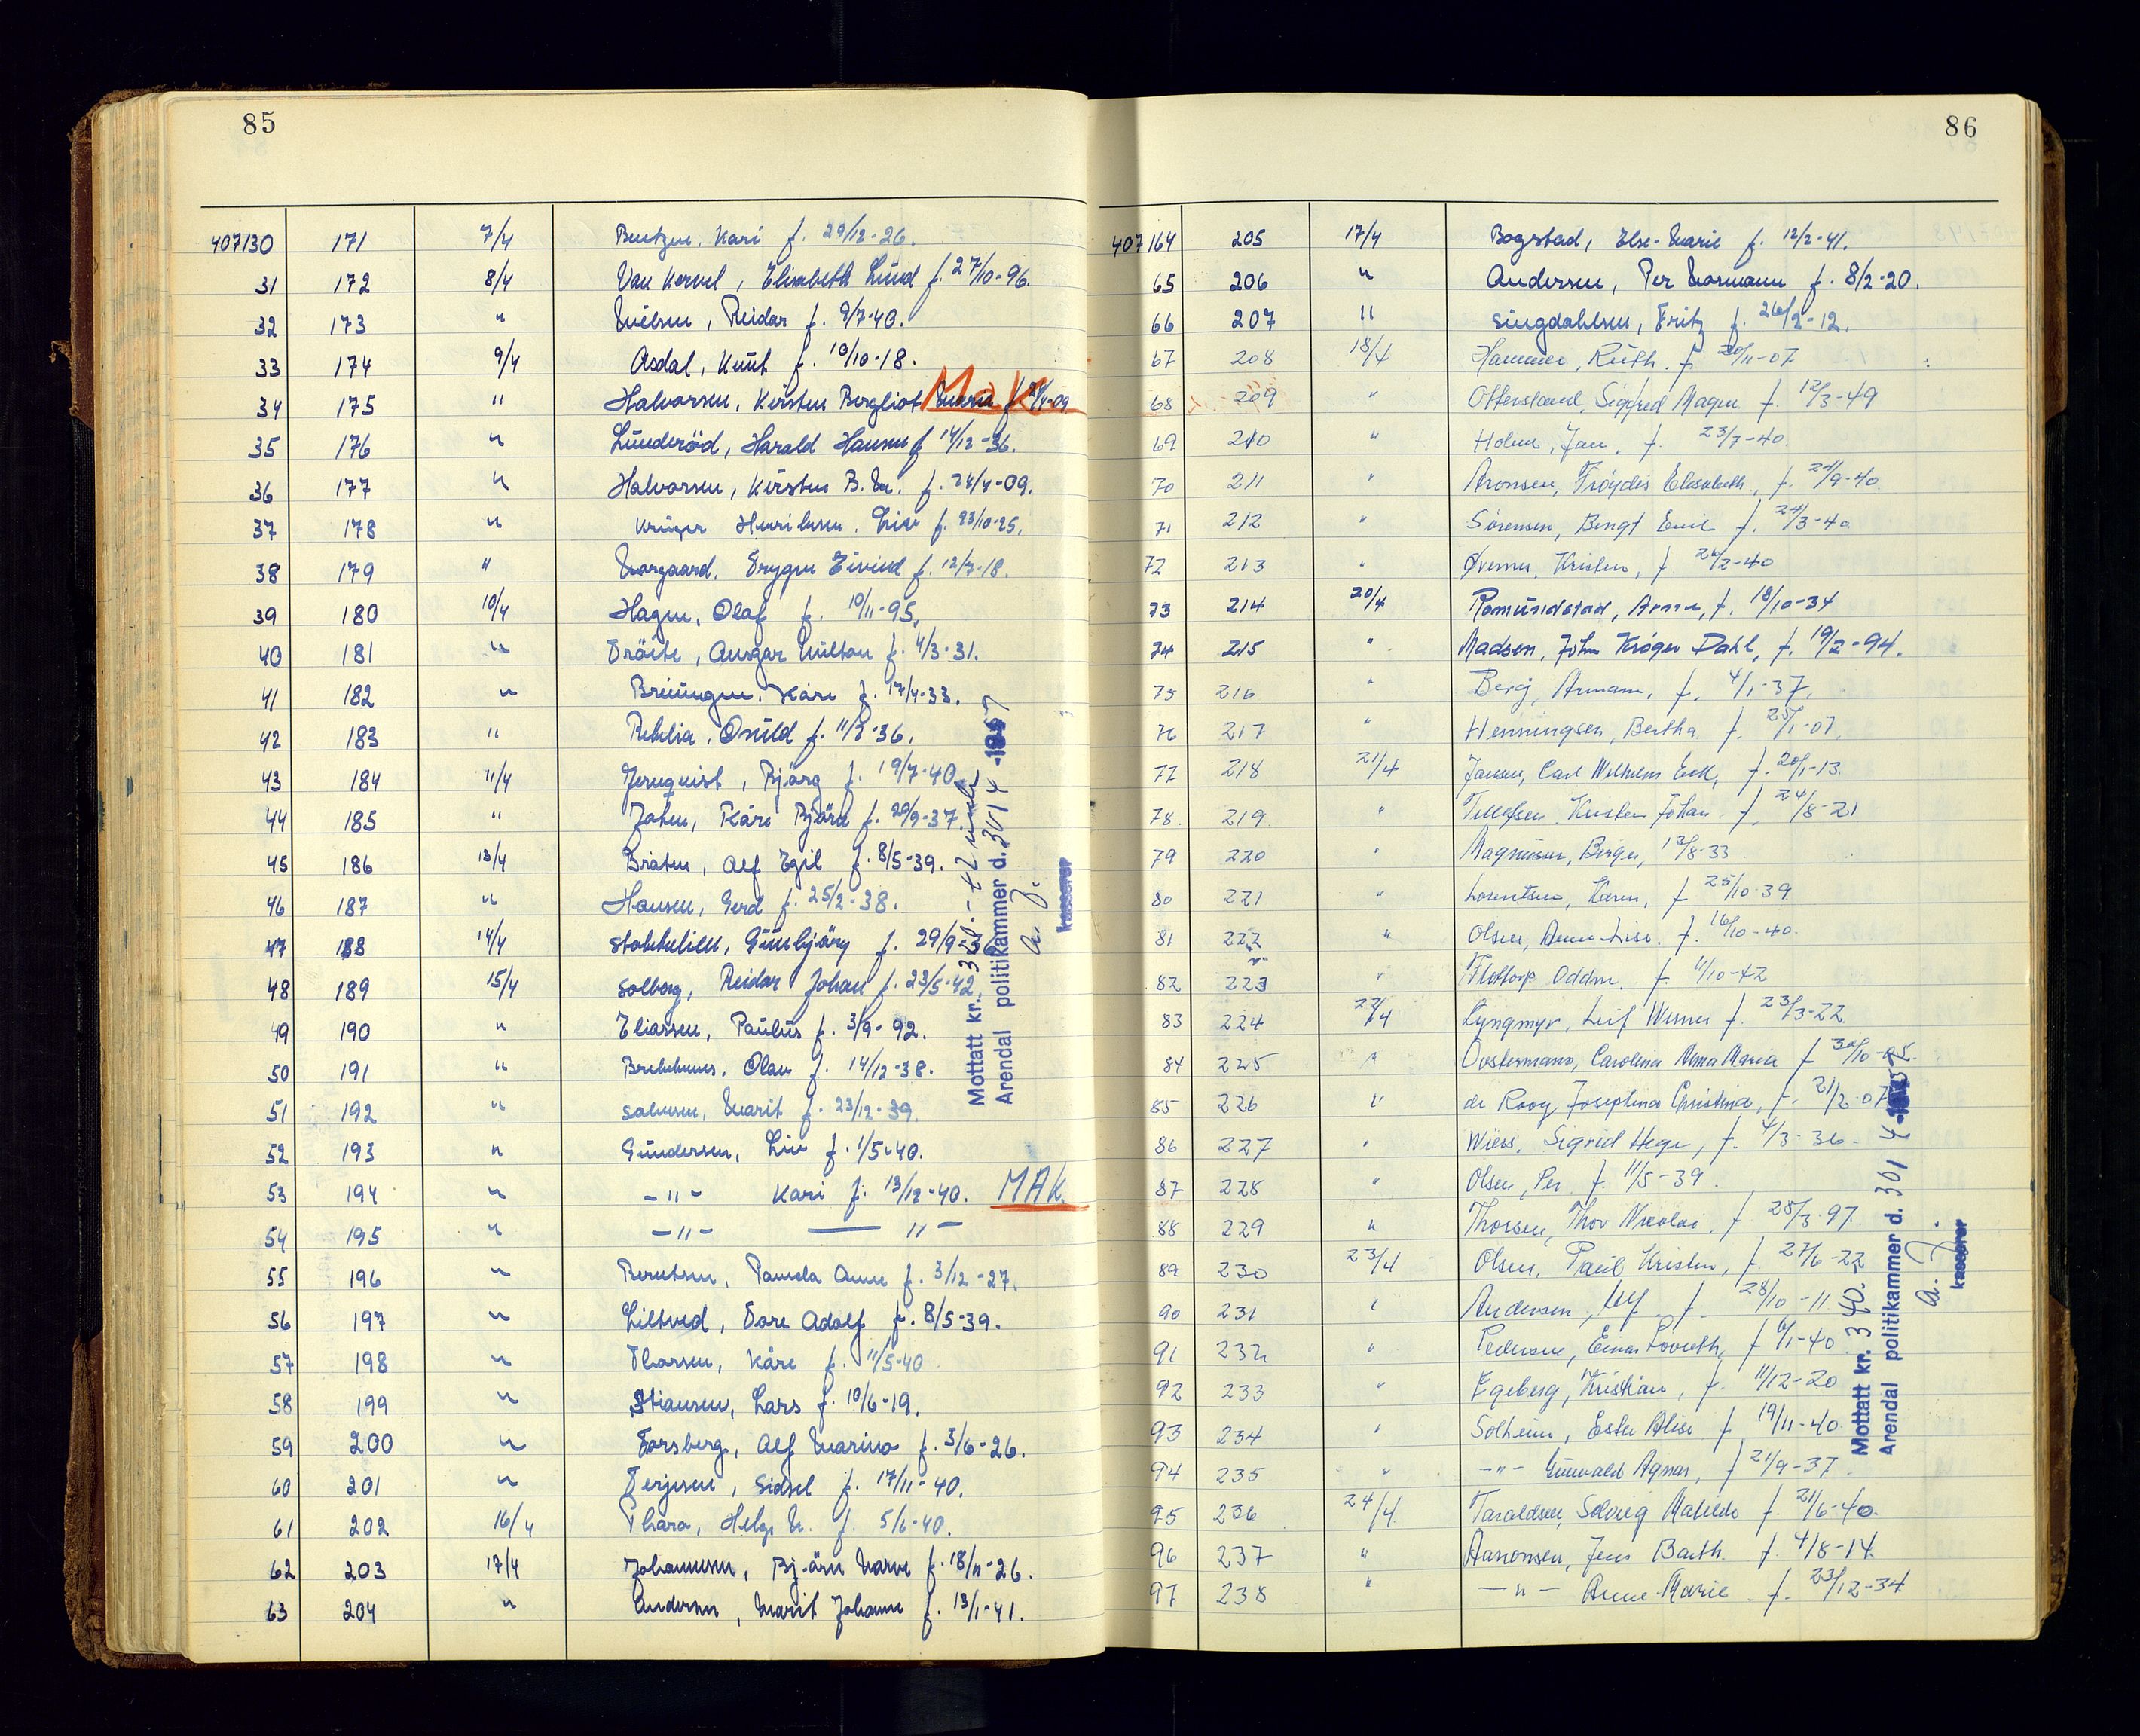 85
407130 171 7/4 Bentzen, Kari f. 29/12-26.
31 172 8/4 Van Kervel, Elisabeth Lund f. 27/10-96.
32 173 " Nielsen, Reidar f. 9/7-40.
33 174 9/4 Asdal, Knut f. 10/10-18.
34 175 " Halvorsen, Kirsten Bergliot Marie f. 24/4-09 MAK
35 176 " Lunderöd, Harald Hansen f. 14/12-36.
36 177 " Halvorsen, Kirsten B. M. f. 24/4-09.
37 178 " Krüger Henriksen, Lise f. 23/10-25.
38 179 " Norgaard, Trygve Eivind f. 12/7-18.
39 180 10/4 Hagen, Olaf f. 10/11-95.
40 181 " Ansgar Milton f. 4/3-31.
41 182 " Kåre f. 17/4-33.
42 183 " f. 11/2-36.
43 184 11/4 Jernquist, Bjørg f. 19/7-40
44 185 " Kåre Bjørn f. 20/9-37.
45 186 13/4 Bråten, Alf Egil f. 8/5-39.
46 187 " Hansen, Gerd f. 25/2-38.
47 188 14/4 Gunbjørg f. 29/9-36
48 189 15/4 Solberg, Reidar Johan f. 23/5-42.
49 190 " Eliassen, Paulus f. 3/9-92.
50 191 " Brekkenes, Olav f. 14/12-38.
51 192 " Salvesen, Marit f. 23/12-39.
52 193 " Gundersen, Liv f. 1/5-40.
53 194 " -"- Kari f. 13/12-40. MAK.
54 195 " -"- — " —
55 196 " Berntsen, Pamela Anne f. 3/12-27.
56 197 " Liltved, Tore Adolf f. 8/5-39.
57 198 " Thorsen, Kåre f. 11/5-40
58 199 " Stiansen, Lars f. 10/6-19.
59 200 " Torsberg, Alf Marino f. 3/6-26.
60 201 " Terjesen, Sidsel f. 17/11-40.
61 202 16/4 Helge M. f. 5/6-40.
62 203 17/4 Johannesen, Bjørn Narve f. 18/11-26.
63 204 " Andersen, Marit Johanne f. 13/1-41.
Mottatt kr.
Arendal politikammer d. 30/4
kasserer
86
407164 205 17/4 Bogstad, Else-Marie f. 12/2-41.
65 206 " Andersen, Per Normann f. 8/2-20.
66 207 " Singdahlsen, Fritz f. 26/2-12.
67 208 18/4 Hammer, Ruth. f. 20/11-07
68 209 " Ottersland, Sigfred Magne f. 12/3-49
69 210 " Holm, Jan, f. 23/7-40.
70 211 " Aronsen, Frøydis Elisabeth, f. 24/9-40.
71 212 " Sørensen, Bengt Emil f. 24/3-40
72 213 " Kristen, f. 24/2-40
73 214 20/4 Romundstad, Arne, f. 18/10-34
74 215 " Madsen, John Krøger Dahl, f. 19/2-94.
75 216 " Berg, Armann, f. 4/1-37.
76 217 " Henningsen, Bertha f. 25/1-07.
77 218 21/4 Jansen, Carl Wilhelm Eek, f. 20/1-13.
78. 219 " Tellefsen, Kristen Johan f. 24/8-21
79 220 " Magnussen, Berger, 13/8-33
80 221 " Lorentsen, Karen, f. 25/10-39
81 222 " Olsen, Anne-Lise. f. 16/10-40.
82 223 " Flottorp Oddm. f. 11/10-42
83 224 22/4 Lyngmyr, Leif Werner f. 23/3-22
84 225 " Oostermann, Carolina Anna Maria f. 30/10-05.
85 226 " de Rooy Josephina Christina, f. 21/2-07
86 227 " Sigrid Hege, f. 4/3-36.
87 228 " Olsen, Per f. 11/5-39.
88 229 " Thorsen, Thor Nicolai, f. 28/3-97.
89 230 23/4 Olsen, Paul Kristen, f. 27/6-22
90 231 " Andersen, Ulf f. 28/10-11
91 232 " Pedersen, Einar f. 6/1-40
92 233 " Egeberg, Kristian, f. 11/12-20
93 234 " Solheim, Ester Alise f. 19/11-40.
94 235 " -"- Gunvald Agnar, f. 21/9-37.
95 236 24/4 Taraldsen, Solveig Matilde f. 21/6-40.
96 237 " Aanonsen, Jens Barth. f. 4/8-14.
97 238 " -"- Anne-Marie f. 23/12-34
Mottatt kr. 340.-
Arendal politikammer d. 30/4
kasserer